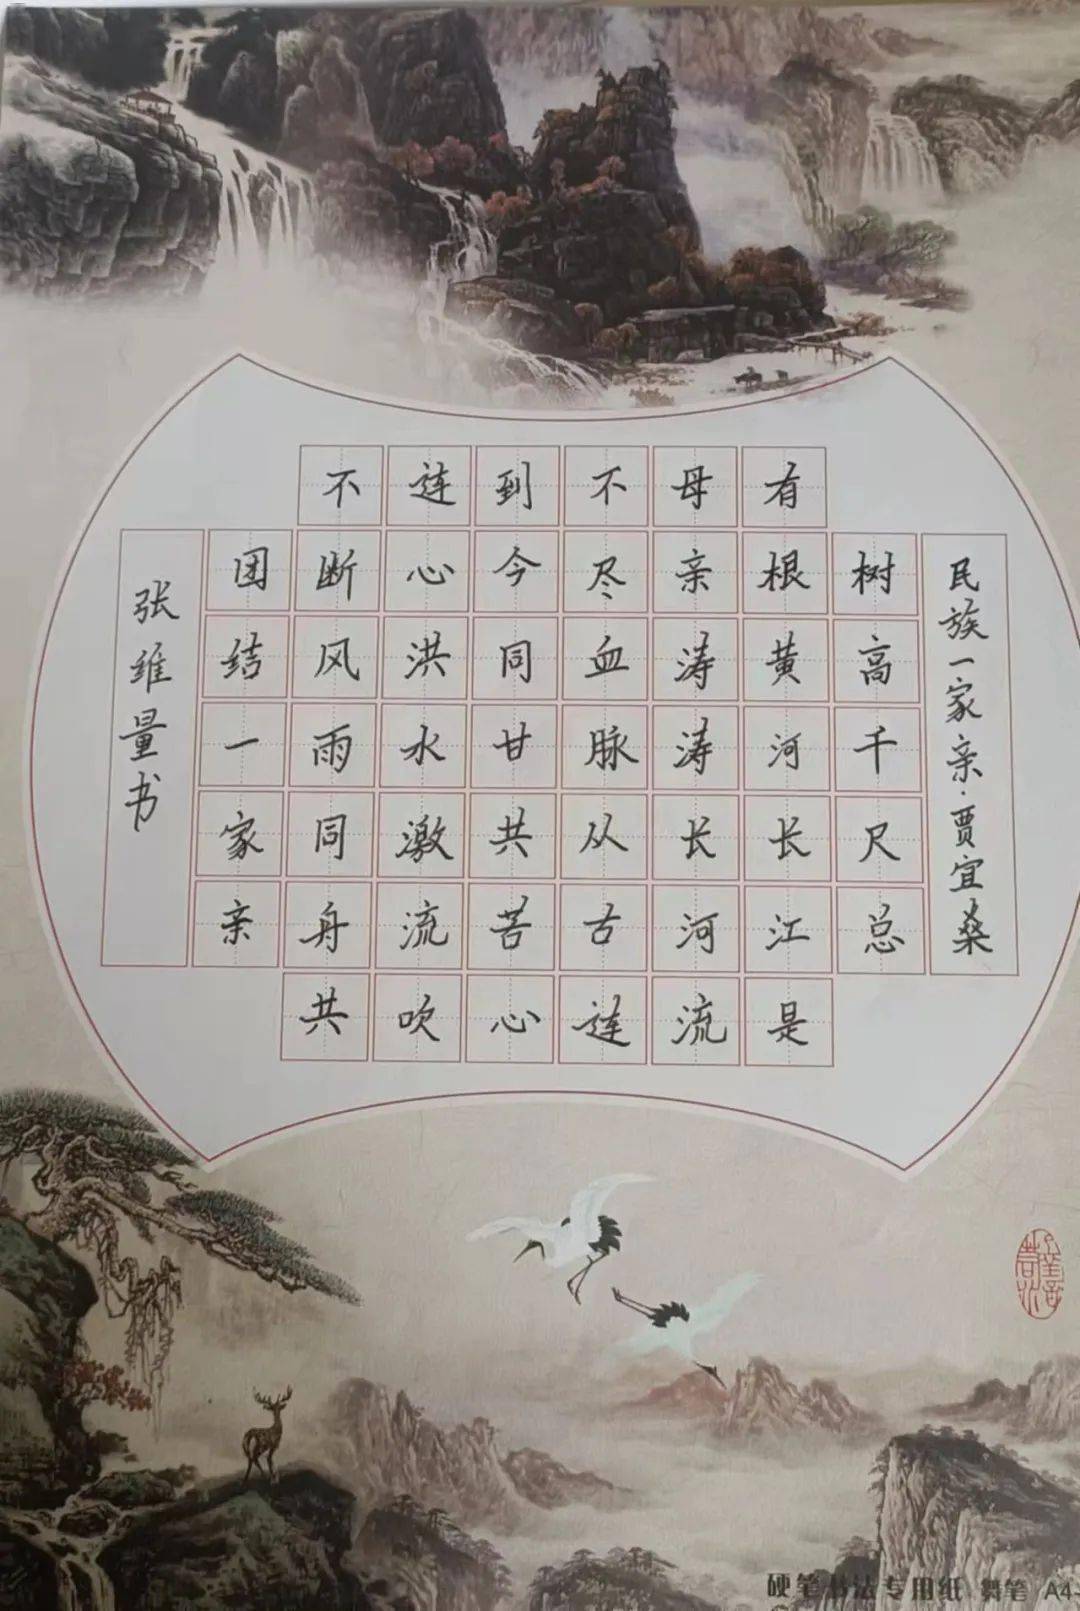 民族一家亲·贾宜桑
树高千尺总
有根黄河长江是
母亲涛涛长河流
不尽血脉从古连
到今同甘共苦心
连心洪水激流吹
不断风雨同舟共
团结一家亲
张维量书
硬笔书法专用纸 舞笔 A4-